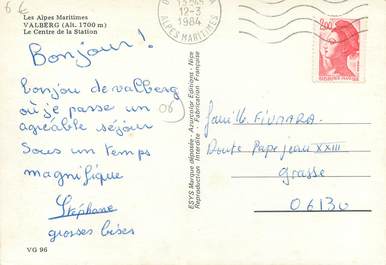 6 €
Les Alpes Maritimes
VALBERG (Alt. 1700 m)
Le Centre de la Station
12-3
1984
ALPES MARITIMES
2,00
Bonjour!
Bonjou de valberg
où je passe un
agréable séjour
06
Sous un temps
magnifique
Stéphane
grosses bises
VG 96
ESYS Marque déposée - Azurcolor Editions - Nice
Reproduction Interdite - Fabrication Française
famille FIUMARA.
Route Pape jean XXIII
Grasse
06130